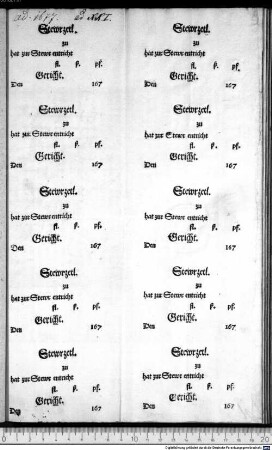 ad. 1677.
Stewrzetl.
zu
hat zur Stewr entricht
fl. ß. pf.
Gericht.
Den 167
Stewrzetl.
zu
hat zur Stewr entricht
fl. ß. pf.
Gericht.
Den 167
Stewrzetl.
zu
hat zur Stewr entricht
fl. ß. pf.
Gericht.
Den 167
Stewrzetl.
zu
hat zur Stewr entricht
fl. ß. pf.
Gericht.
Den 167
Stewrzetl.
zu
hat zur Stewr entricht
fl. ß. pf.
Gericht.
Den 167
Stewrzetl.
zu
hat zur Stewr entricht
fl. ß. pf.
Gericht.
Den 167
Stewrzetl.
zu
hat zur Stewr entricht
fl. ß. pf.
Gericht.
Den 167
Stewrzetl.
zu
hat zur Stewr entricht
fl. ß. pf.
Gericht.
Den 167
Stewrzetl.
zu
hat zur Stewr entricht
fl. ß. pf.
Gericht.
Den 167
Stewrzetl.
zu
hat zur Stewr entricht
fl. ß. pf.
Gericht.
Den 167